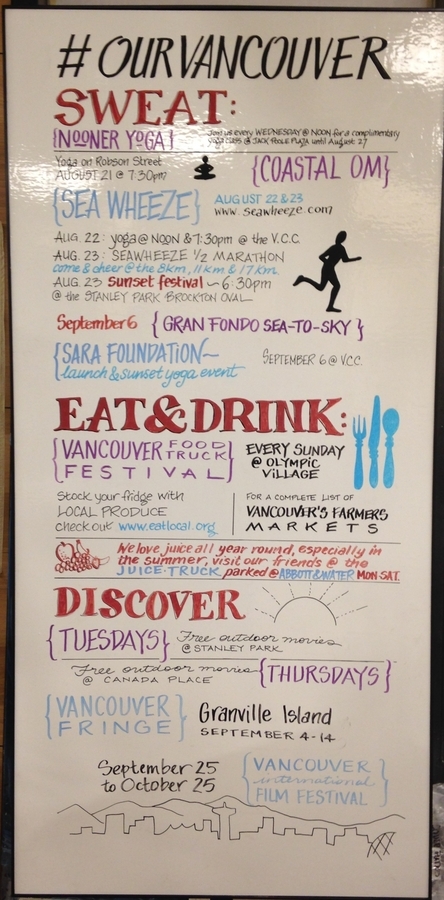 #OURVANCOUVER
SWEAT:
{NOONER YOGA} Join us every WEDNESDAY @ NOON for a complimentary
yoga class @ JACK POOLE PLAZA until August 27
Yoga on Robson Street
AUGUST 21 @ 7:30pm {COASTAL OM}
{SEA WHEEZE} AUGUST 22 & 23
www.seawheeze.com
AUG. 22: yoga @ NOON & 7:30pm @ the V.C.C.
AUG. 23: SEAWHEEZE 1/2 MARATHON
come & cheer @ the 8km, 11km & 17km
AUG. 23 sunset festival ~ 6:30pm
@ the STANLEY PARK BROCKTON OVAL
September 6 {GRAN FONDO SEA-TO-SKY}
{SARA FOUNDATION~ SEPTEMBER 6 @ V.C.C.
launch & sunset yoga event
EAT & DRINK:
{VANCOUVER FOOD TRUCK
FESTIVAL}
EVERY SUNDAY
@ OLYMPIC
VILLAGE
Stock your fridge with
LOCAL PRODUCE
check out www.eatlocal.org
FOR A COMPLETE LIST OF
VANCOUVER'S FARMERS
MARKETS
We love juice all year round, especially in
the summer, visit our friends @ the
JUICE TRUCK parked @ ABBOTT & WATER MON-SAT.
DISCOVER
{TUESDAYS} Free outdoor movies
@ STANLEY PARK
Free outdoor movies {THURSDAYS}
@ CANADA PLACE
{VANCOUVER
FRINGE}
Granville Island
SEPTEMBER 4-14
September 25
to October 25
{VANCOUVER
international
FILM FESTIVAL}